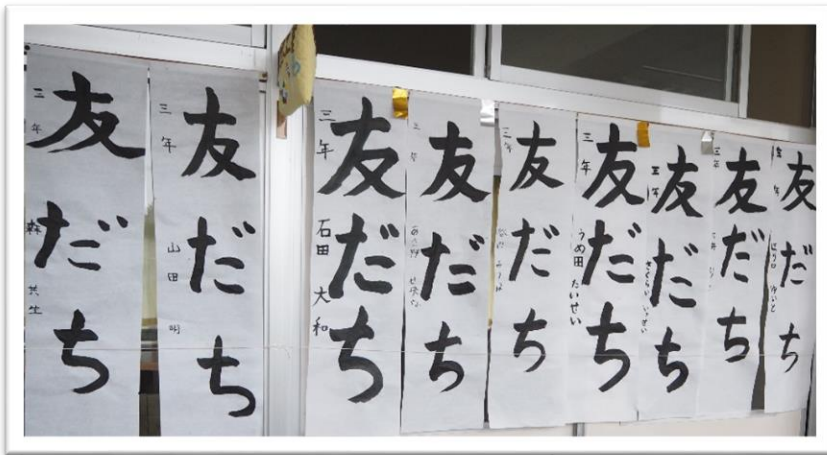 友だち
三年
友だち
三年 山田
友だち
三年 石田 大和
友だち
三年
友だち
三年
友だち
三年 うめ田 たいせい
友だち
三年 さくらい
友だち
三年
友だち
三年 ゆいと